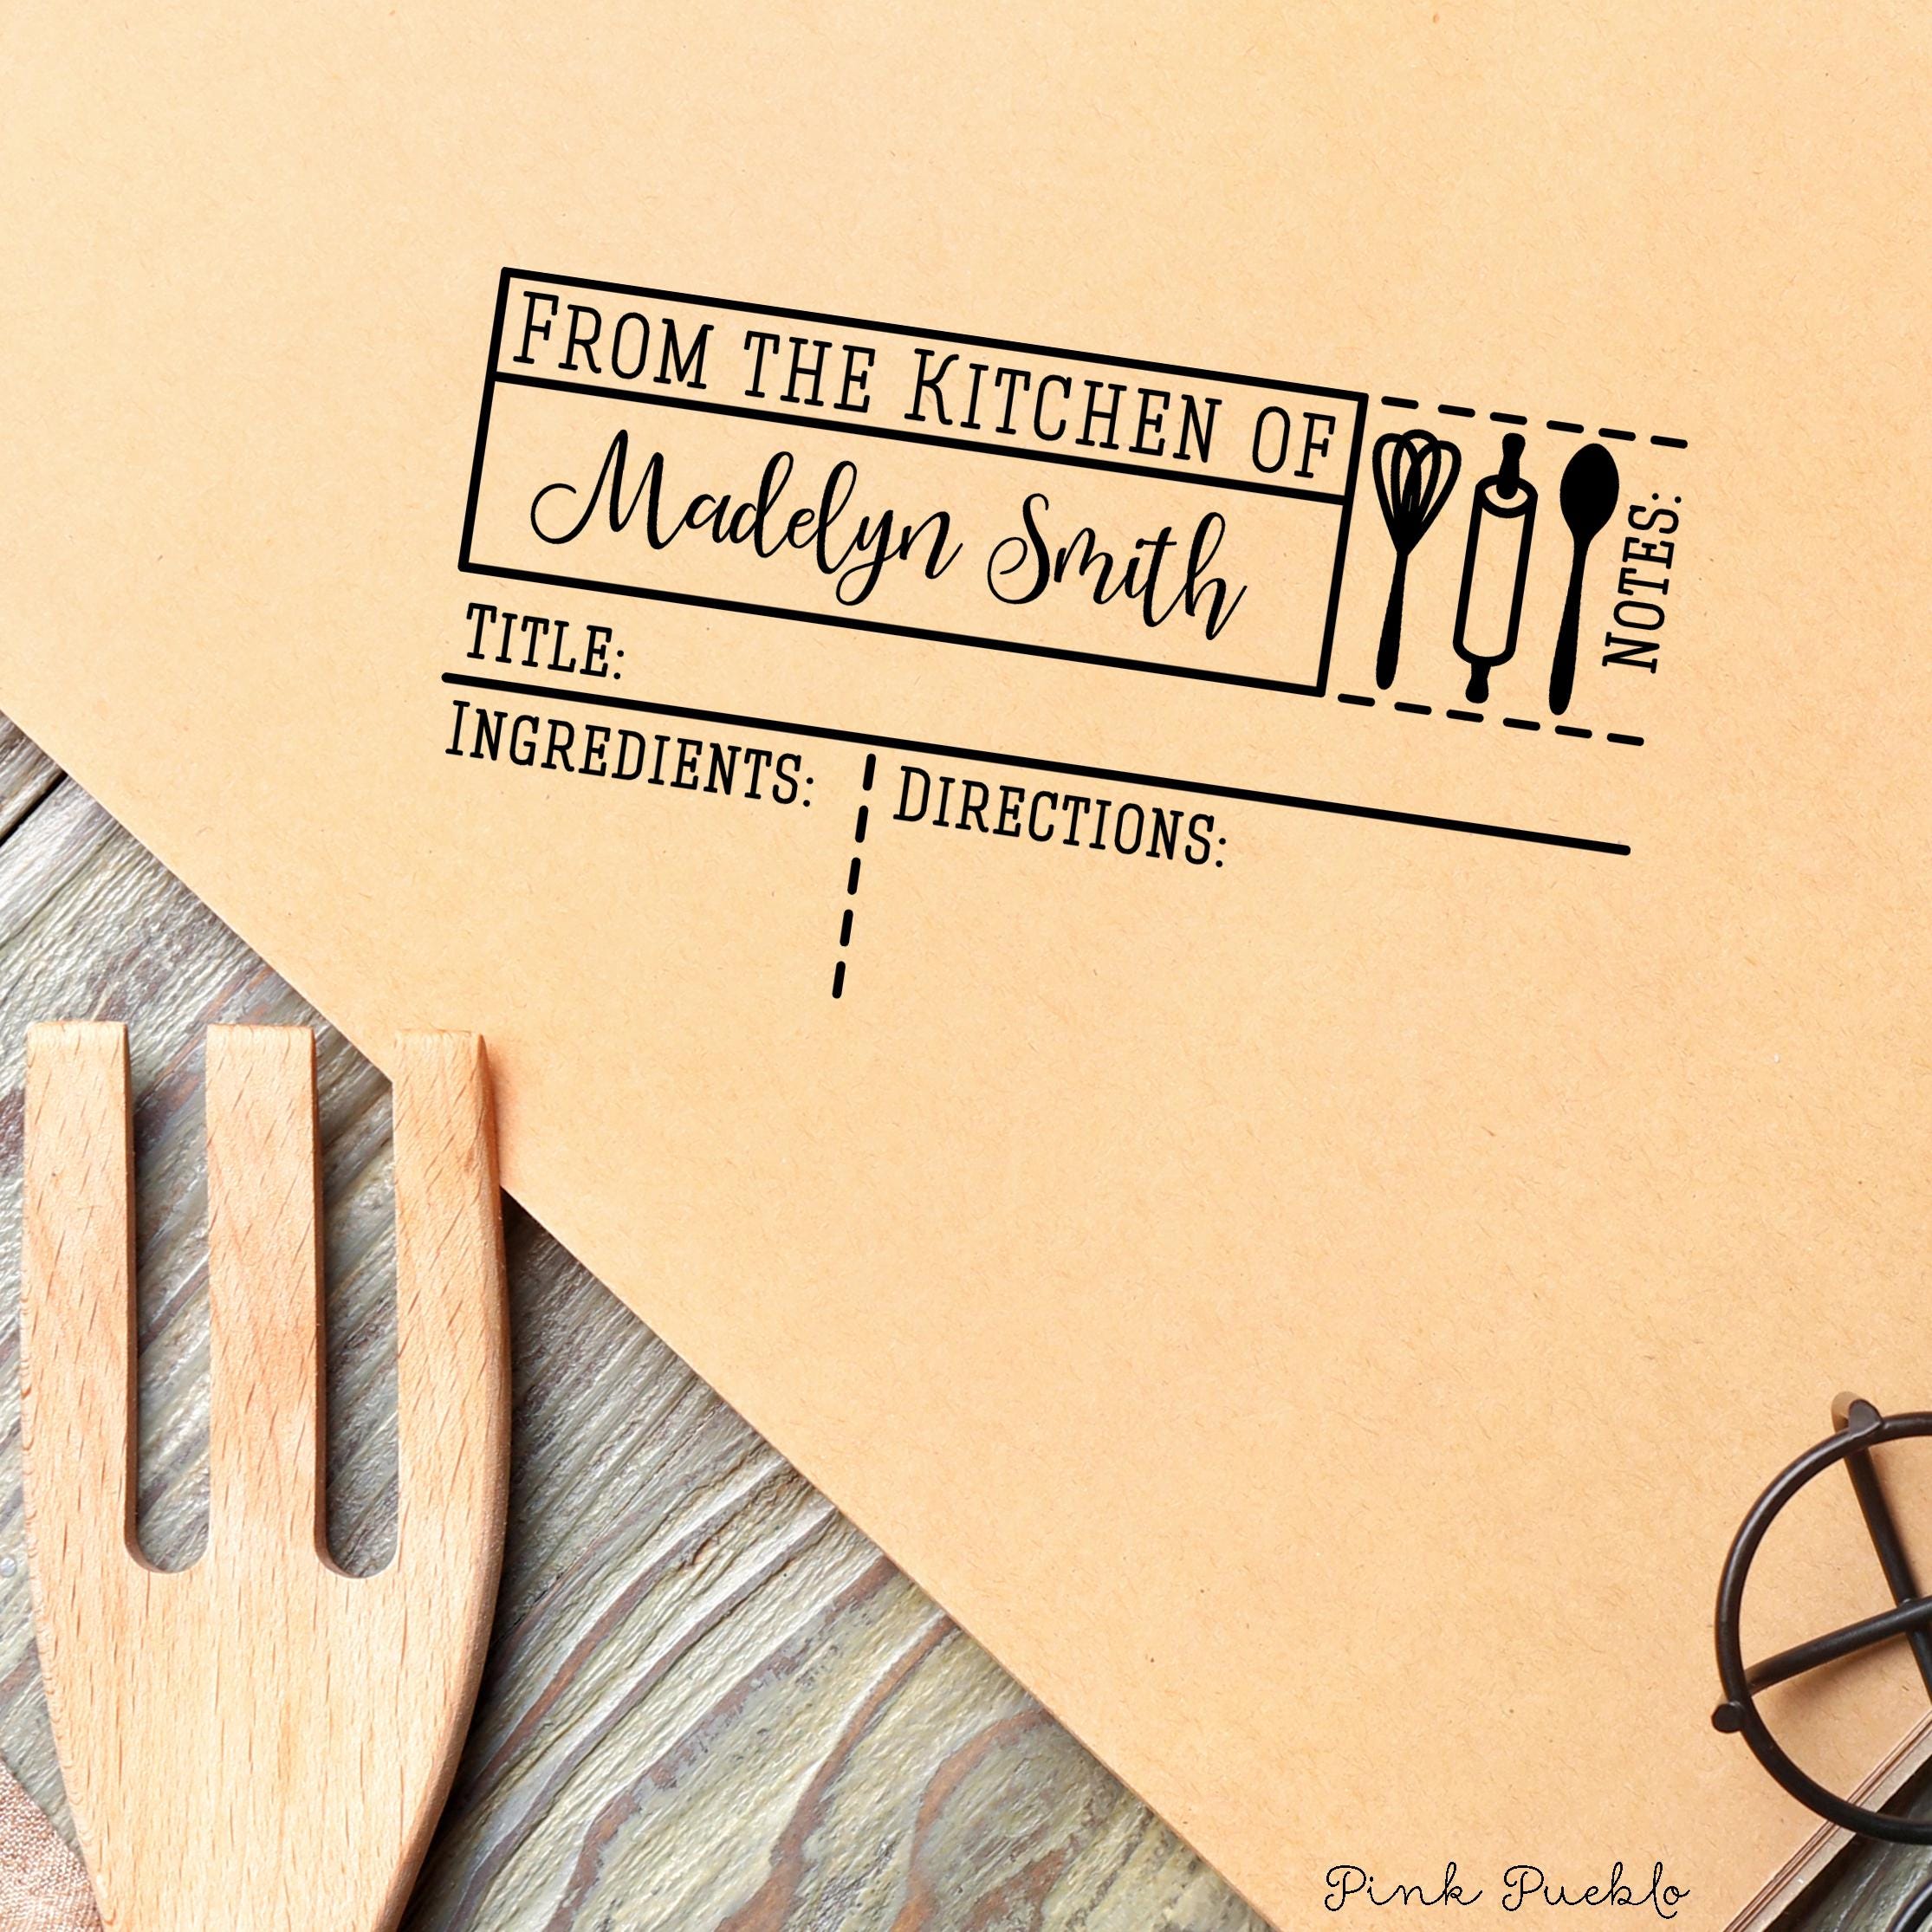 From the Kitchen of
Madelyn Smith
Notes:
Title:
Ingredients:
Directions:
Pink Pueblo